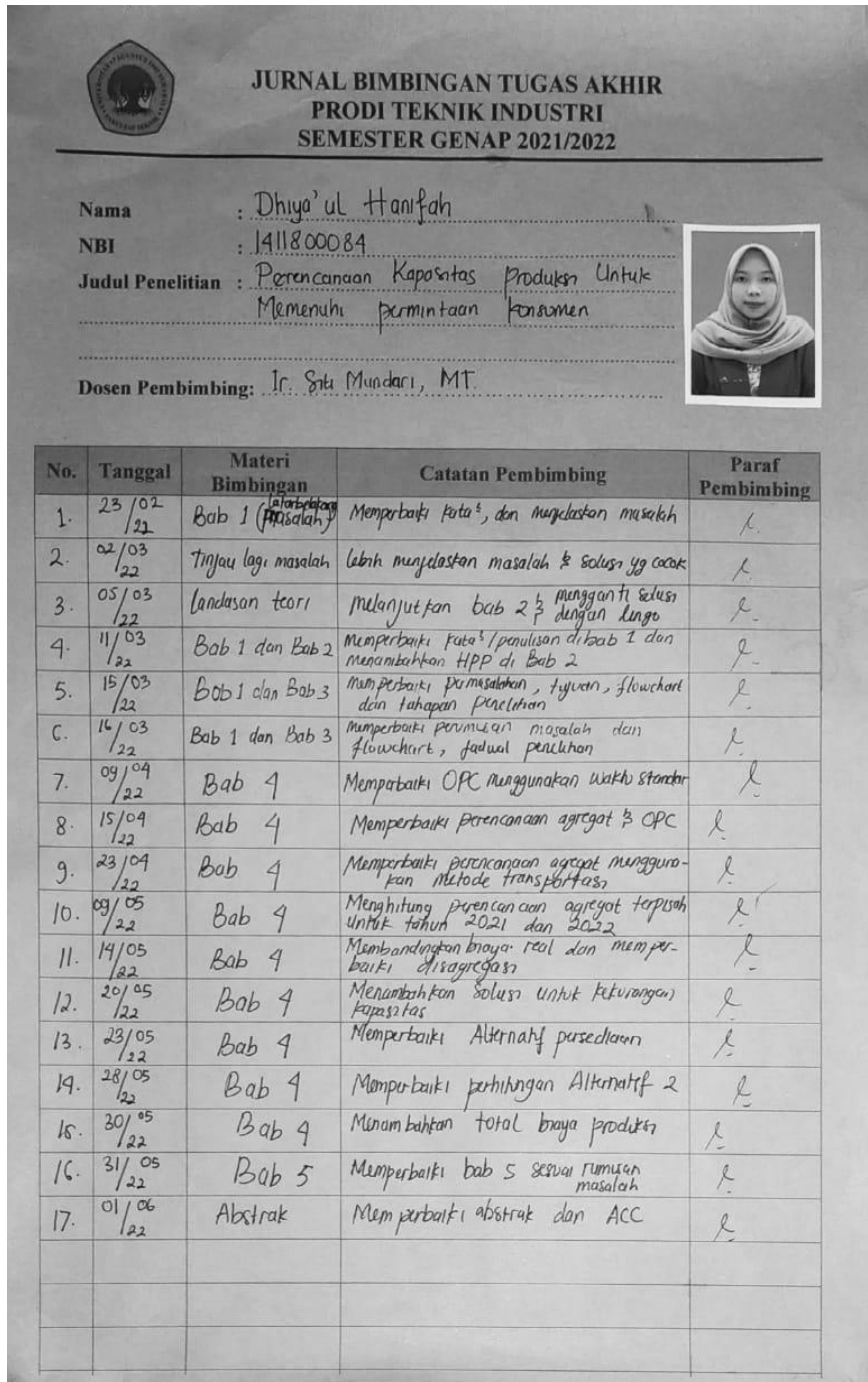 JURNAL BIMBINGAN TUGAS AKHIR
PRODI TEKNIK INDUSTRI
SEMESTER GENAP 2021/2022
Nama : Dhiya'ul Hanifah
NBI : 1411800084
Judul Penelitian : Perencanaan Kapasitas Produksi Untuk
Memenuhi permintaan konsumen
Dosen Pembimbing: Ir. Siti Mundari, MT.
No. Tanggal Materi Bimbingan Catatan Pembimbing Paraf Pembimbing
1. 23/02/22 Bab 1 (latarbelakang masalah) Memperbaiki kata², dan menjelaskan masalah
2. 02/03/22 tinjau lagi masalah lebih menjelaskan masalah & solusi yg cocok
3. 05/03/22 landasan teori melanjutkan bab 2 & mengganti solusi dengan lingo
4. 11/03/22 Bab 1 dan Bab 2 Memperbaiki kata²/penulisan di bab 1 dan
menambahkan HPP di Bab 2
5. 15/03/22 Bab 1 dan Bab 3 Memperbaiki permasalahan, tujuan, flowchart
dan tahapan penelitian
6. 16/03/22 Bab 1 dan Bab 3 Memperbaiki perumusan masalah dan
flowchart, jadwal penelitian
7. 09/04/22 Bab 4 Memperbaiki OPC menggunakan waktu standar
8. 15/04/22 Bab 4 Memperbaiki perencanaan agregat & OPC
9. 23/04/22 Bab 4 Memperbaiki perencanaan agregat mengguna-
kan Metode transportasi
10. 09/05/22 Bab 4 Menghitung perencanaan agregat terpisah
untuk tahun 2021 dan 2022
11. 14/05/22 Bab 4 Membandingkan biaya real dan memper-
baiki disagregasi
12. 20/05/22 Bab 4 Menambahkan solusi untuk kekurangan
kapasitas
13. 23/05/22 Bab 4 Memperbaiki Alternatif persediaan
14. 28/05/22 Bab 4 Memperbaiki perhitungan Alternatif 2
15. 30/05/22 Bab 4 Menambahkan total biaya produksi
16. 31/05/22 Bab 5 Memperbaiki bab 5 sesuai rumusan
masalah
17. 01/06/22 Abstrak Memperbaiki abstrak dan ACC